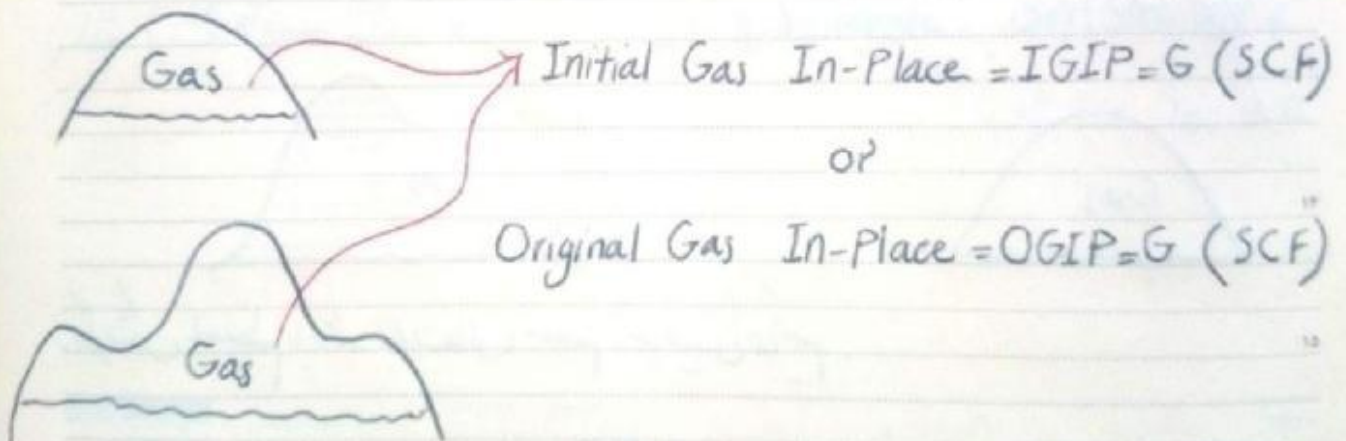 Gas
Initial Gas In-Place = IGIP = G (SCF)
or
Original Gas In-Place = OGIP = G (SCF)
Gas